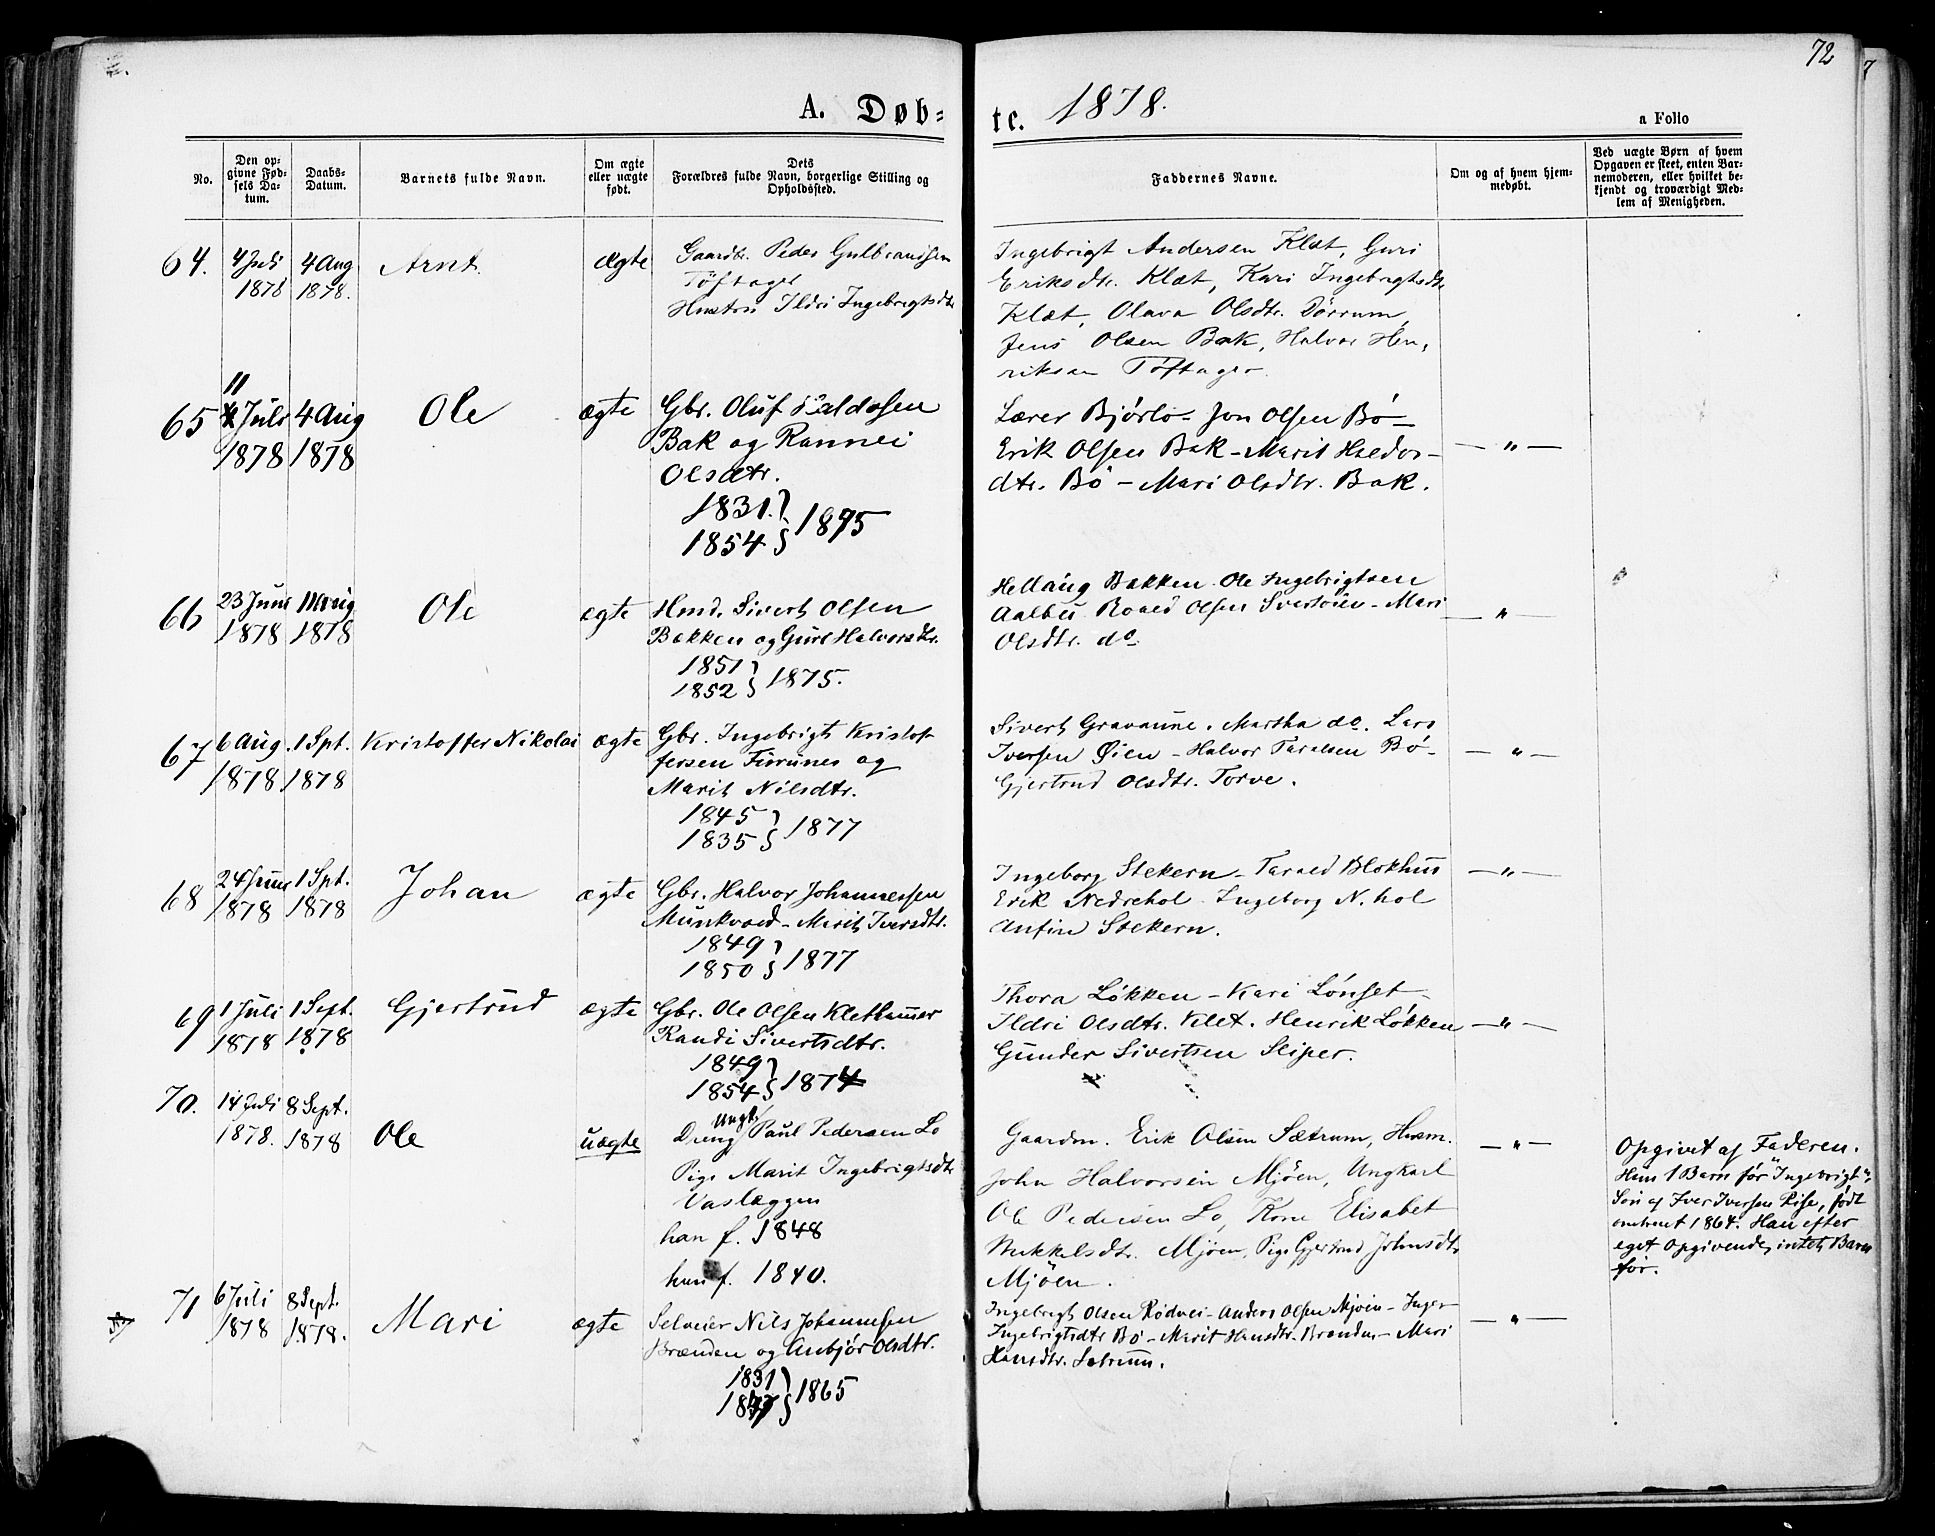 72
A. Døb=
te. 1878.
a Folio
No.
Den op=
givne Fød=
sels Da=
tum.
Daabs=
Datum.
Barnets fulde Navn.
Om ægte
eller uægte
født.
Dets
Forældres fulde Navn, borgerlige Stilling og
Opholdssted.
Faddernes Navne.
Om og af hvem hjem=
medøbt.
Ved uægte Børn af hvem
Opgaven er skeet, enten Bar=
nemoderen, eller hvilket be=
kjendt og troværdigt Med=
lem af Menigheden.
64.
4 Juli
1878
4 Aug
1878.
Arnt
Ægte
Gaardbr. Peder Gulbrandsen
Töftager
Hustru Ildri Ingebrigtsdtr
Ingebrigt Andersen Klæt, Guri
Eriksdtr. Klæt, Kari Ingebrigtsdtr
Klæt, Olava Olsdtr. Dörrum,
Jens Olsen Bak, Halvor Hen,
riksen Töftager.
65
11
Juli
1878
4 Aug
1878
Ole
ægte
Gbr. Oluf Haldosen
Bak og Rannei
Olsdtr.
1831.
1854 } 1875
Lærer Bjørlo - Jon Olsen Bö -
Erik Olsen Bak - Marit Haldor-
dtr. Bö - Mari Olsdtr. Bak.
— " —
66
23 Juni
1878
11 Aug
1878
Ole
ægte
Hmd. Sivert Olsen
Bakken og Guri Halvorsdtr.
1851
1852 } 1875.
Bakken - Ole Ingebrigtsen
Aalbu Roald Olsen - Mari
Olsdtr. do
— " —
67
6 Aug.
1878
1 Spt.
1878
Kristoffer Nikolai
ægte
Gbr. Ingebrigt Kristof-
fersen og
Marit Nilsdtr.
1845
1835 } 1877
Sivert Gravaune. Martha do. Lars
Iversen Øien - Halvor Taralsen Bö -
Gjertrud Olsdtr. Torve.
— " —
68
24 Juni
1878
1 Spt.
1878
Johan
ægte
Gbr. Halvor Johannessen
Munkvold - Marit Iversdtr.
1849
1850 } 1877
Ingeborg Stekern - Tarald Blokhus
Erik Nedrehol - Ingeborg N. hol
Anfin Stekern.
— " —
69
1 Juli
1878
1 Sept.
1878
Gjertrud
ægte
Gbr. Ole Olsen Klethammer
Randi Sivertsdtr.
1849
1854 } 1874
Thora Lökken - Kari Lönset -
Ildri Olsdtr. Klet. Henrik Lökken
Gunder Sivertsen Sliper.
— " —
70.
14 Juli
1878.
8 Sept.
1878
Ole
uægte
Ungk.
Dreng Paul Pedersen Lo
Pige Marit Ingebrigtsdtr
Vaslæggen
han f. 1848
hun f. 1840.
Gaardm. Erik Olsen Sætrum, Husm.
John Halvorsen Mjöen, Ungkarl
Ole Pedersen Lo, Kone Elisabet
Mikkelsdtr. Mjöen, Pige Gjertrud Johnsdtr
Mjöen.
— " —
Opgivet af Faderen.
Hun 1 Barn før "Ingebrigt",
Søn af Iver Iversen Rise, født
omtrent 1864. Han efter
eget Opgivende, intet Barn
før.
71
6 Juli
1878
8 Sept.
1878.
Mari
ægte
Selveier Nils Johannesen
Brænden og Anbjör Olsdtr.
1831
1837 } 1865
Ingebrigt Olsen Rödvei - Anders Olsen Mjöen - Inger
Ingebrigtsdtr Bö - Marit Hansdtr. Brænden - Mari
Hansdtr. Sætrum.
— " —